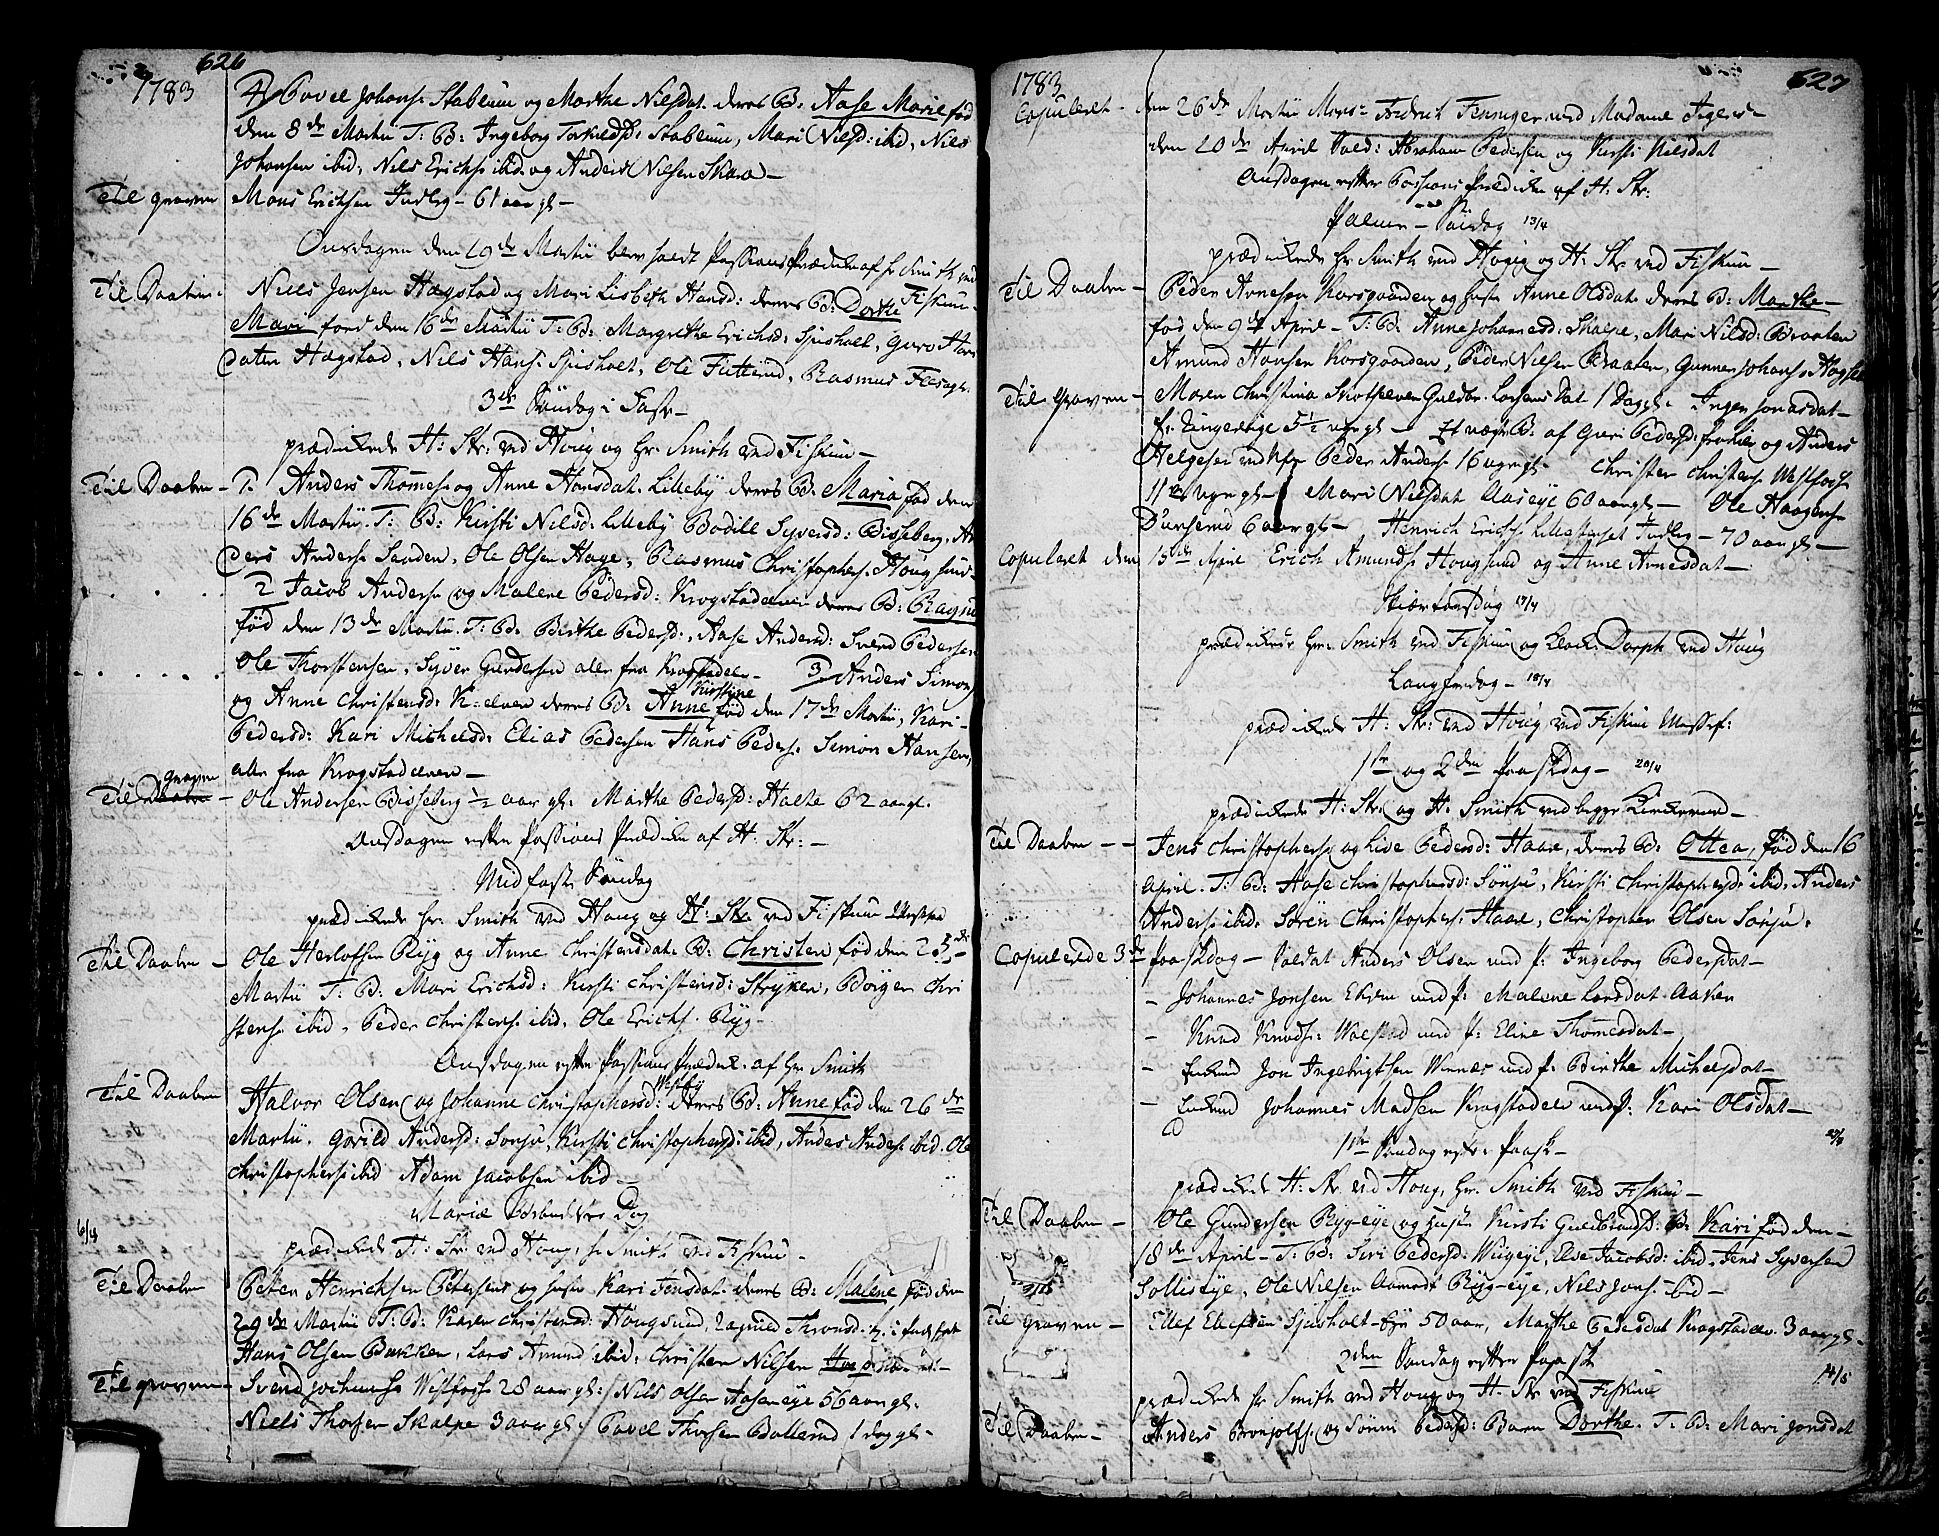 626
1783
4, Povel Johans: Stablum og Marthe Nilsdat. deres B: Aase Marie fød
den 8de Martii T: B: Ingeborg Torkelsd: Stablum, Mari Nilsd: ibid, Nils
Johansen ibid, Nils Erichs: ibid. og Anders Nilsen Skara –
Til graven Mons Erichsen Inderlg – 61 aar gl –
Onsdagen den 19de Martii blev holdt Passions Prædiken af hr Smith ved
Fiskum –
Til Daaben – Niels Jensen Hægstad og Mari Lisbeth Hansd: deres B: Dorthe
Mari fød den 16de Martii T: B: Margrethe Erichsd: Sjusholt, Guro Hans
dater Hægstad, Nils Hans: Sjusholt, Ole Rasmus
3de Søndag i Faste –
prædikede H: Str: ved Houg og Hr. Smith ved Fiskum –
Til Daaben – 1. Anders Thomes: og Anne Hansdat. Lilleby deres B: Maria fød den
16de Martii. T: B: Kirsti Nilsd: Lilleby Bodill Syversd: Bisseberg, An
ders Anders: Sanden, Ole Olsen Hage, Rasmus Christophers: Hougsund –
2 Jacob Anders: og Malene Pedersd: Krogstadelven deres B: Ragne
fød den 13de Martii. T: B: Birthe Pedersd:, Aase Andersd: Svend Pedersen
Ole Thorstensen, Syver Gundersen alle fra Krogstadel – 3 Anders Simons
og Anne Christensd: K:elven deres B: Anne Kirstine fød den 17de Martii, Kari
Pedersd: Kari Michelsd: Elias Pedersen Hans Peders: Simon Hansen
alle fra Krogstadelven –
Til graven – Ole Andersen Bisseberg ½ aar gl: Marthe Pedersd: Holte 62 aar gl.
Onsdagen efter Passions Prædiken af H: Str: –
Midfaste Søndag
prædikede Hr. Smith ved Houg og H: Str: ved Fiskum
Til Daaben – Ole Herlofsen Ryg og Anne Christensdat. B: Christen fød den 23de
Martii T: B: Mari Erichsd: Kirsti Christensd: Stryken, Børger Chri
stens: ibid, Peder Christens: ibid, Ole Erichs: Ryg –
Onsdagen efter Passions Prædik. af Hr. Smith
Til Daaben Halvor Olsen og Johanne Christophersd: Westby deres B: Anne fød den 26de
Martii. Gorild Andersd: Sønsu, Kirsti Christophersd: ibid, Anders Anders: ibid. Ole
Christophers: ibid Adam Jacobsen ibid. –
Mariæ Bebudelses Dag
6/4 prædikede H: Str: ved Houg, hr Smith ved Fiskum –
Til Daaben Peter Henrichsen Petersens og huste Kari Jensdat. deres B: Malene fød den
29de Martii T: B: Karen Christensd: Hougsund,
Hans Olsen Bakken, Lars Amund: ibid: Christen Nilsen
Til graven – Svend Jochums: Westfoss 28 aar gl: Nils Olsen Aaseneye 56 aar gl.
Niels Thorsen Skalpe 3 aar gl: Povel Thorsen Bollerud 1 dag gl –
627
1783
Copuleret – den 26de Martii Mons: Fredrich ved Madame
den 20de April Sold: Abraham Pedersen og Kirsti Nilsdat
Onsdagen efter Passions Prædiken af H: Str:
Palme – Søndag 13/4
prædikede Hr. Smith ved Houg og H: Str ved Fiskum –
Til Daaben – Peder Arnesen Korsgaarden og huste Anne Olsdat. deres B: Marthe –
fød den 9de April – T: B: Anne Johannesd: Skalpe, Mari Nilsd: Braaten
Amund Hansen Korsgaarden, Peder Nilsen Braaten, Gunner Johans:
Til Graven – Maren Christina Skotselven Guldbr. Larsens Dat 1 Dag gl. Inger Jonasdat –
5½ uge gl – B: af Guri Pedersd: og Anders
Helgesen ved Peder Anders: 16 uger gl. Christen Christens: Westfoss
11 uger gl – Mari Nilsdat Aaseye 60 aar gl – Ole Haagens:
Dunserud 6 aar gl – Henrich Erichs: Inderlg – 70 aar gl –
Copuleret den 15de April Erich Amunds: Hougsund og Anne Arnesdat –
Skiærtorsdag 17/4
prædikede Hr. Smith ved Fiskum og Klok: Dorph ved Houg
Langfredag – 18/4
prædikede H: Str: ved Houg ved Fiskum Messef:
1ste og 2den Paaskdag – 20/4
prædikede H: Str: og H. Smith ved begge Kirkerne –
Til Daaben – – Jens Christophers: og Live Pedersd: Haare, deres B: Ottea, fød den 16
April. T: B: Aase Christophersd: Sønsu, Kirsti Christophersd: ibid, Anders
Anders: ibid. Sören Christophers: Haare, Christopher Olsen Sønsu.
Copulerede 3de Paaskdag – Soldat Anders Olsen med P: Ingeborg Pedersdat –
– Johannes Jonsen Ekren med P: Malene Larsdat Aaken
– Knud Knuds: Wolstad med P: Eline Thomesdat –
– Enkemd Jon Ingebrigtsen Winnes med P: Birthe Michelsdat –
– Enkemd Johannes Madsen Krogstadelv med P: Kari Olsdat –
1ste Søndag efter Paask –
prædikede H: Str ved Houg, Hr. Smith ved Fiskum –
Til Daaben – Ole Gundersen Ryg-eye og huste Kirsti Guldbrandsd: B: Kari fød den –
18de April – T: B: Siri Pedersd: Else Jacobsd: ibid, Jens Syversen
Solliseye, Ole Nilsen Aamodt Ryg-eye, Nils Jons: ibid –
Til Graven – Ellef Ellefsen Sjusholt-eye 50 aar, Marthe Pedersdat Krogstadelv. 3 aar gl –
2den Søndag efter Paask
prædikede Hr Smith ved Houg og H: Str ved Fiskum
Til Daaben – Anders Bronjolfs: og Sønnu Pedersd: Barn Dorthe. T: B: Mari Jonsdat